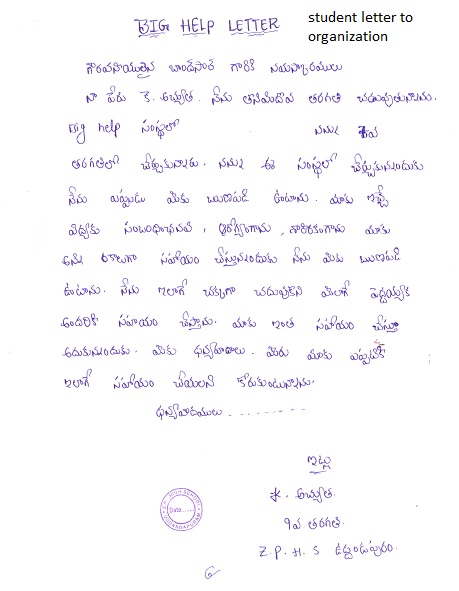 BIG HELP LETTER
student letter to
organization
గౌరవనీయులైన చాంద్‌పాషా గారికి నమస్కారములు
నా పేరు కె. అచ్యుత. నేను తొమ్మిదవ తరగతి చదువుతున్నాను.
Big help సంస్థలో నన్ను 7వ
తరగతిలో చేర్చుకున్నారు. నన్ను ఈ సంస్థలో చేర్చుకున్నందుకు
నేను ఎప్పుడు మీకు ఋణపడి ఉంటాను. మాకు ఇచ్చే
విద్యకు సంబంధించినవి, ఆరోగ్యంగాను, శారీరకంగాను మాకు
అన్ని రకాలుగా సహాయం చేస్తున్నందుకు నేను మీకు ఋణపడి
ఉంటాను. నేను ఇలాగే చక్కగా చదువుకొని మీలాగే పెద్దయ్యాక
అందరికి సహాయం చేస్తాను. మాకు ఇంత సహాయం చేస్తూ
ఆదుకున్నందుకు. మీకు ధన్యవాదాలు. మీరు మాకు ఎప్పటికి
ఇలాగే సహాయం చేయాలని కోరుకుంటున్నాను.
ధన్యవాదములు . . . . . . . .
ఇట్లు
K. అచ్యుత.
9వ తరగతి.
Z.P.H.S ఉద్దండపురం.
HIGH SCHOOL
Date
UDDANDAPURAM